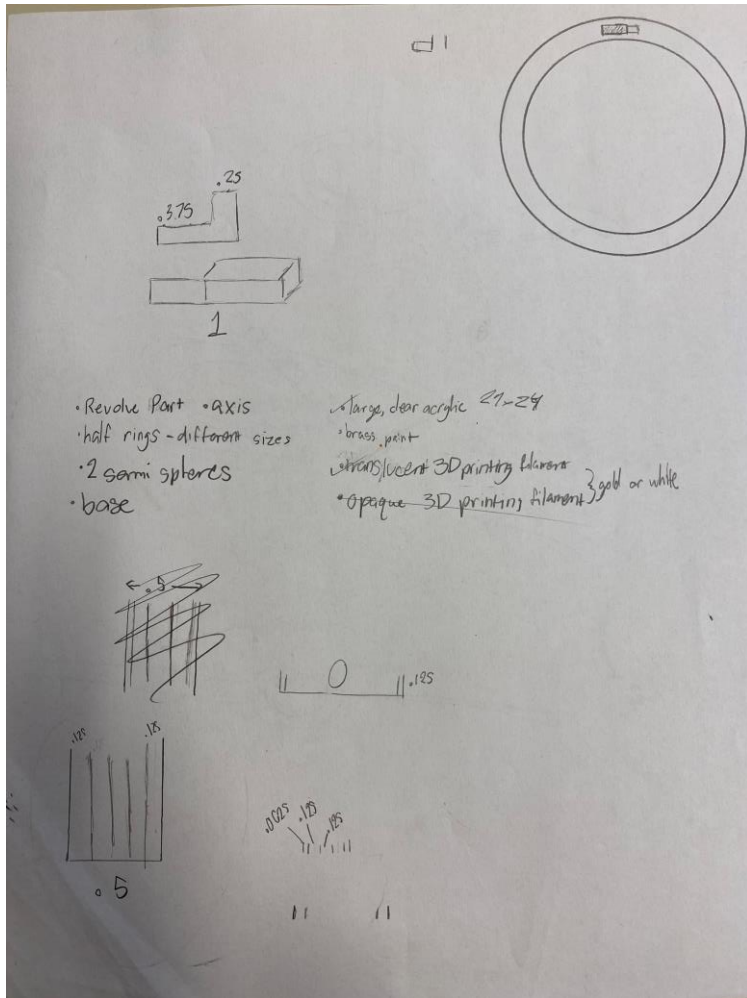 .25
.375
1
• Revolve Part • axis
• half rings - different sizes
• 2 semi spheres
• base
large, clear acrylic
• brass paint
translucent 3D printing filament
• opaque 3D printing filament } gold or white
.5
.125
.125
.125
.5
.125
.125